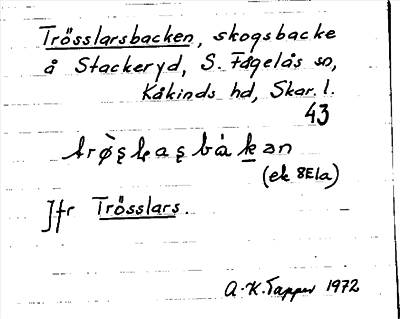 Trösslarsbacken, skogsbacke
å Stackeryd, S. Fågelås sn,
Kåkinds hd, Skar. l.
43
(ek 8E1a)
Jfr Trösslars.
A-K. Tapper 1972